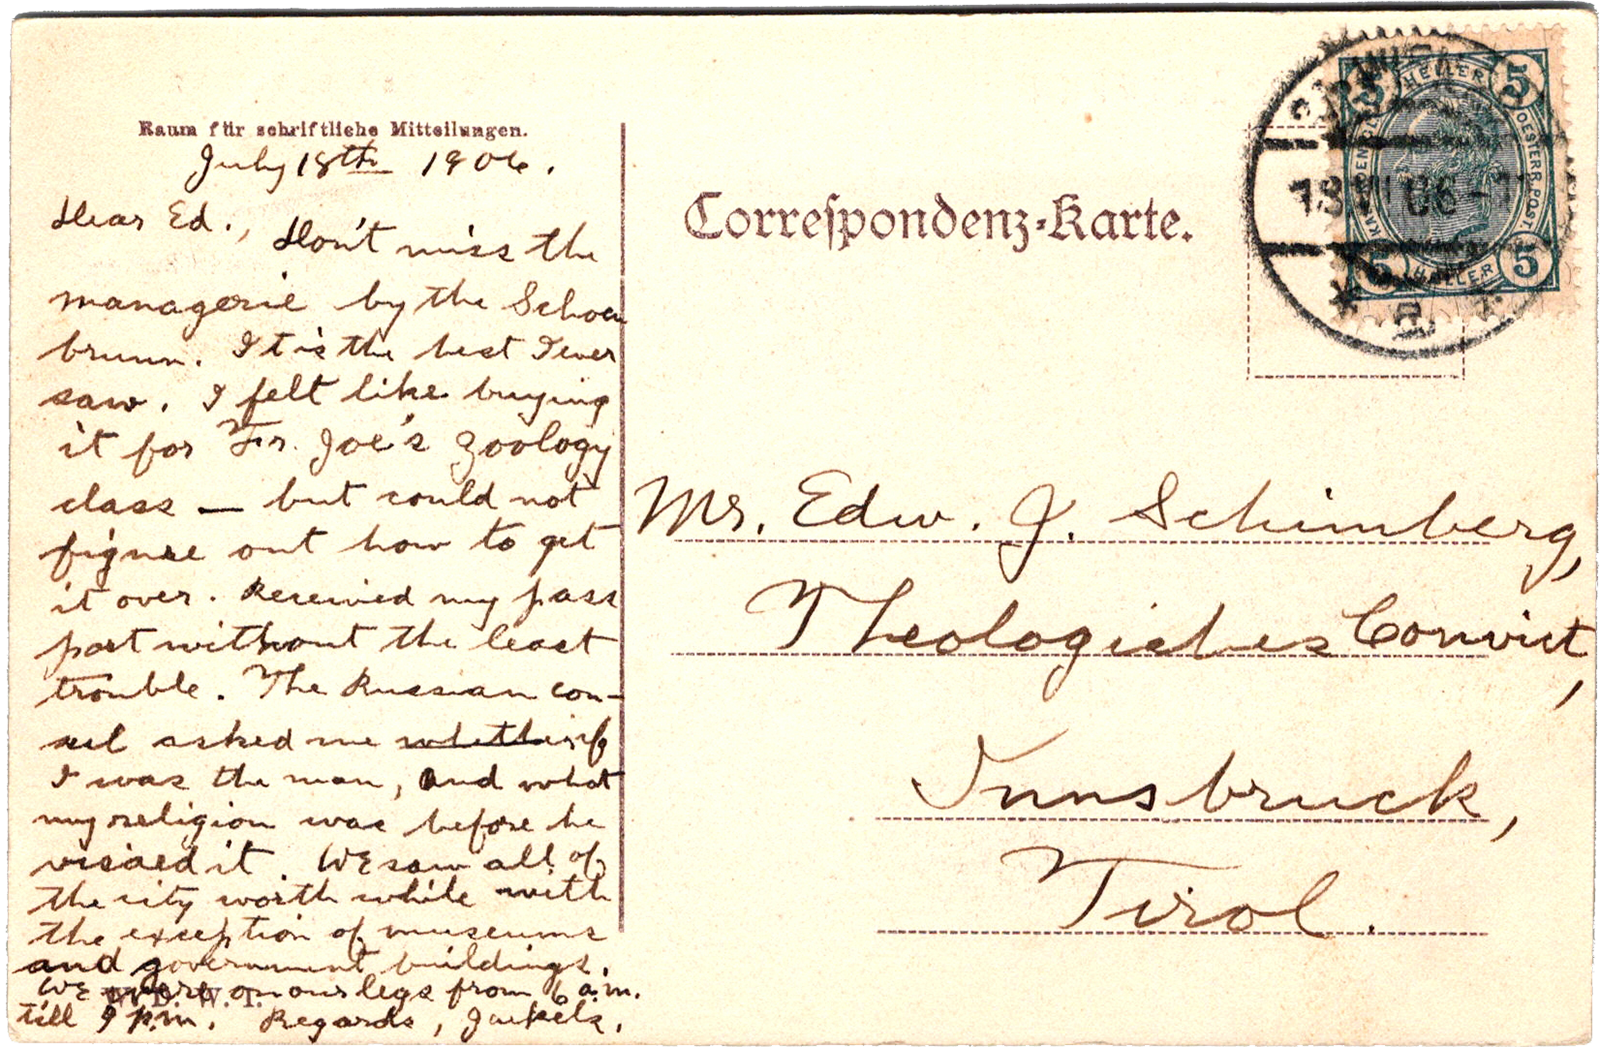 Raum für schriftliche Mitteilungen.
July 18th 1906.
Dear Ed.,
Don't miss the
managerie by the Schoen
brunn. It is the best I ever
saw. I felt like buying
it for Fr. Joe's Zoology
class — but could not
figure out how to get
it over. Received my pass
port without the least
trouble. The Russian con-
sul asked me whether if
I was the man, and what
my religion was before he
visaed it. We saw all of
the city worth while with
the exception of museums
and government buildings.
We were on our legs from 6 a.m.
till 9 p.m. Regards,
W. T.
Correspondenz-Karte.
5 HELLER 5
OESTERR. POST.
5 HELLER 5
18 VII 06
* a *
Mr. Edw. J. Schimberg,
Theologisches Convict,
Innsbruck,
Tirol.